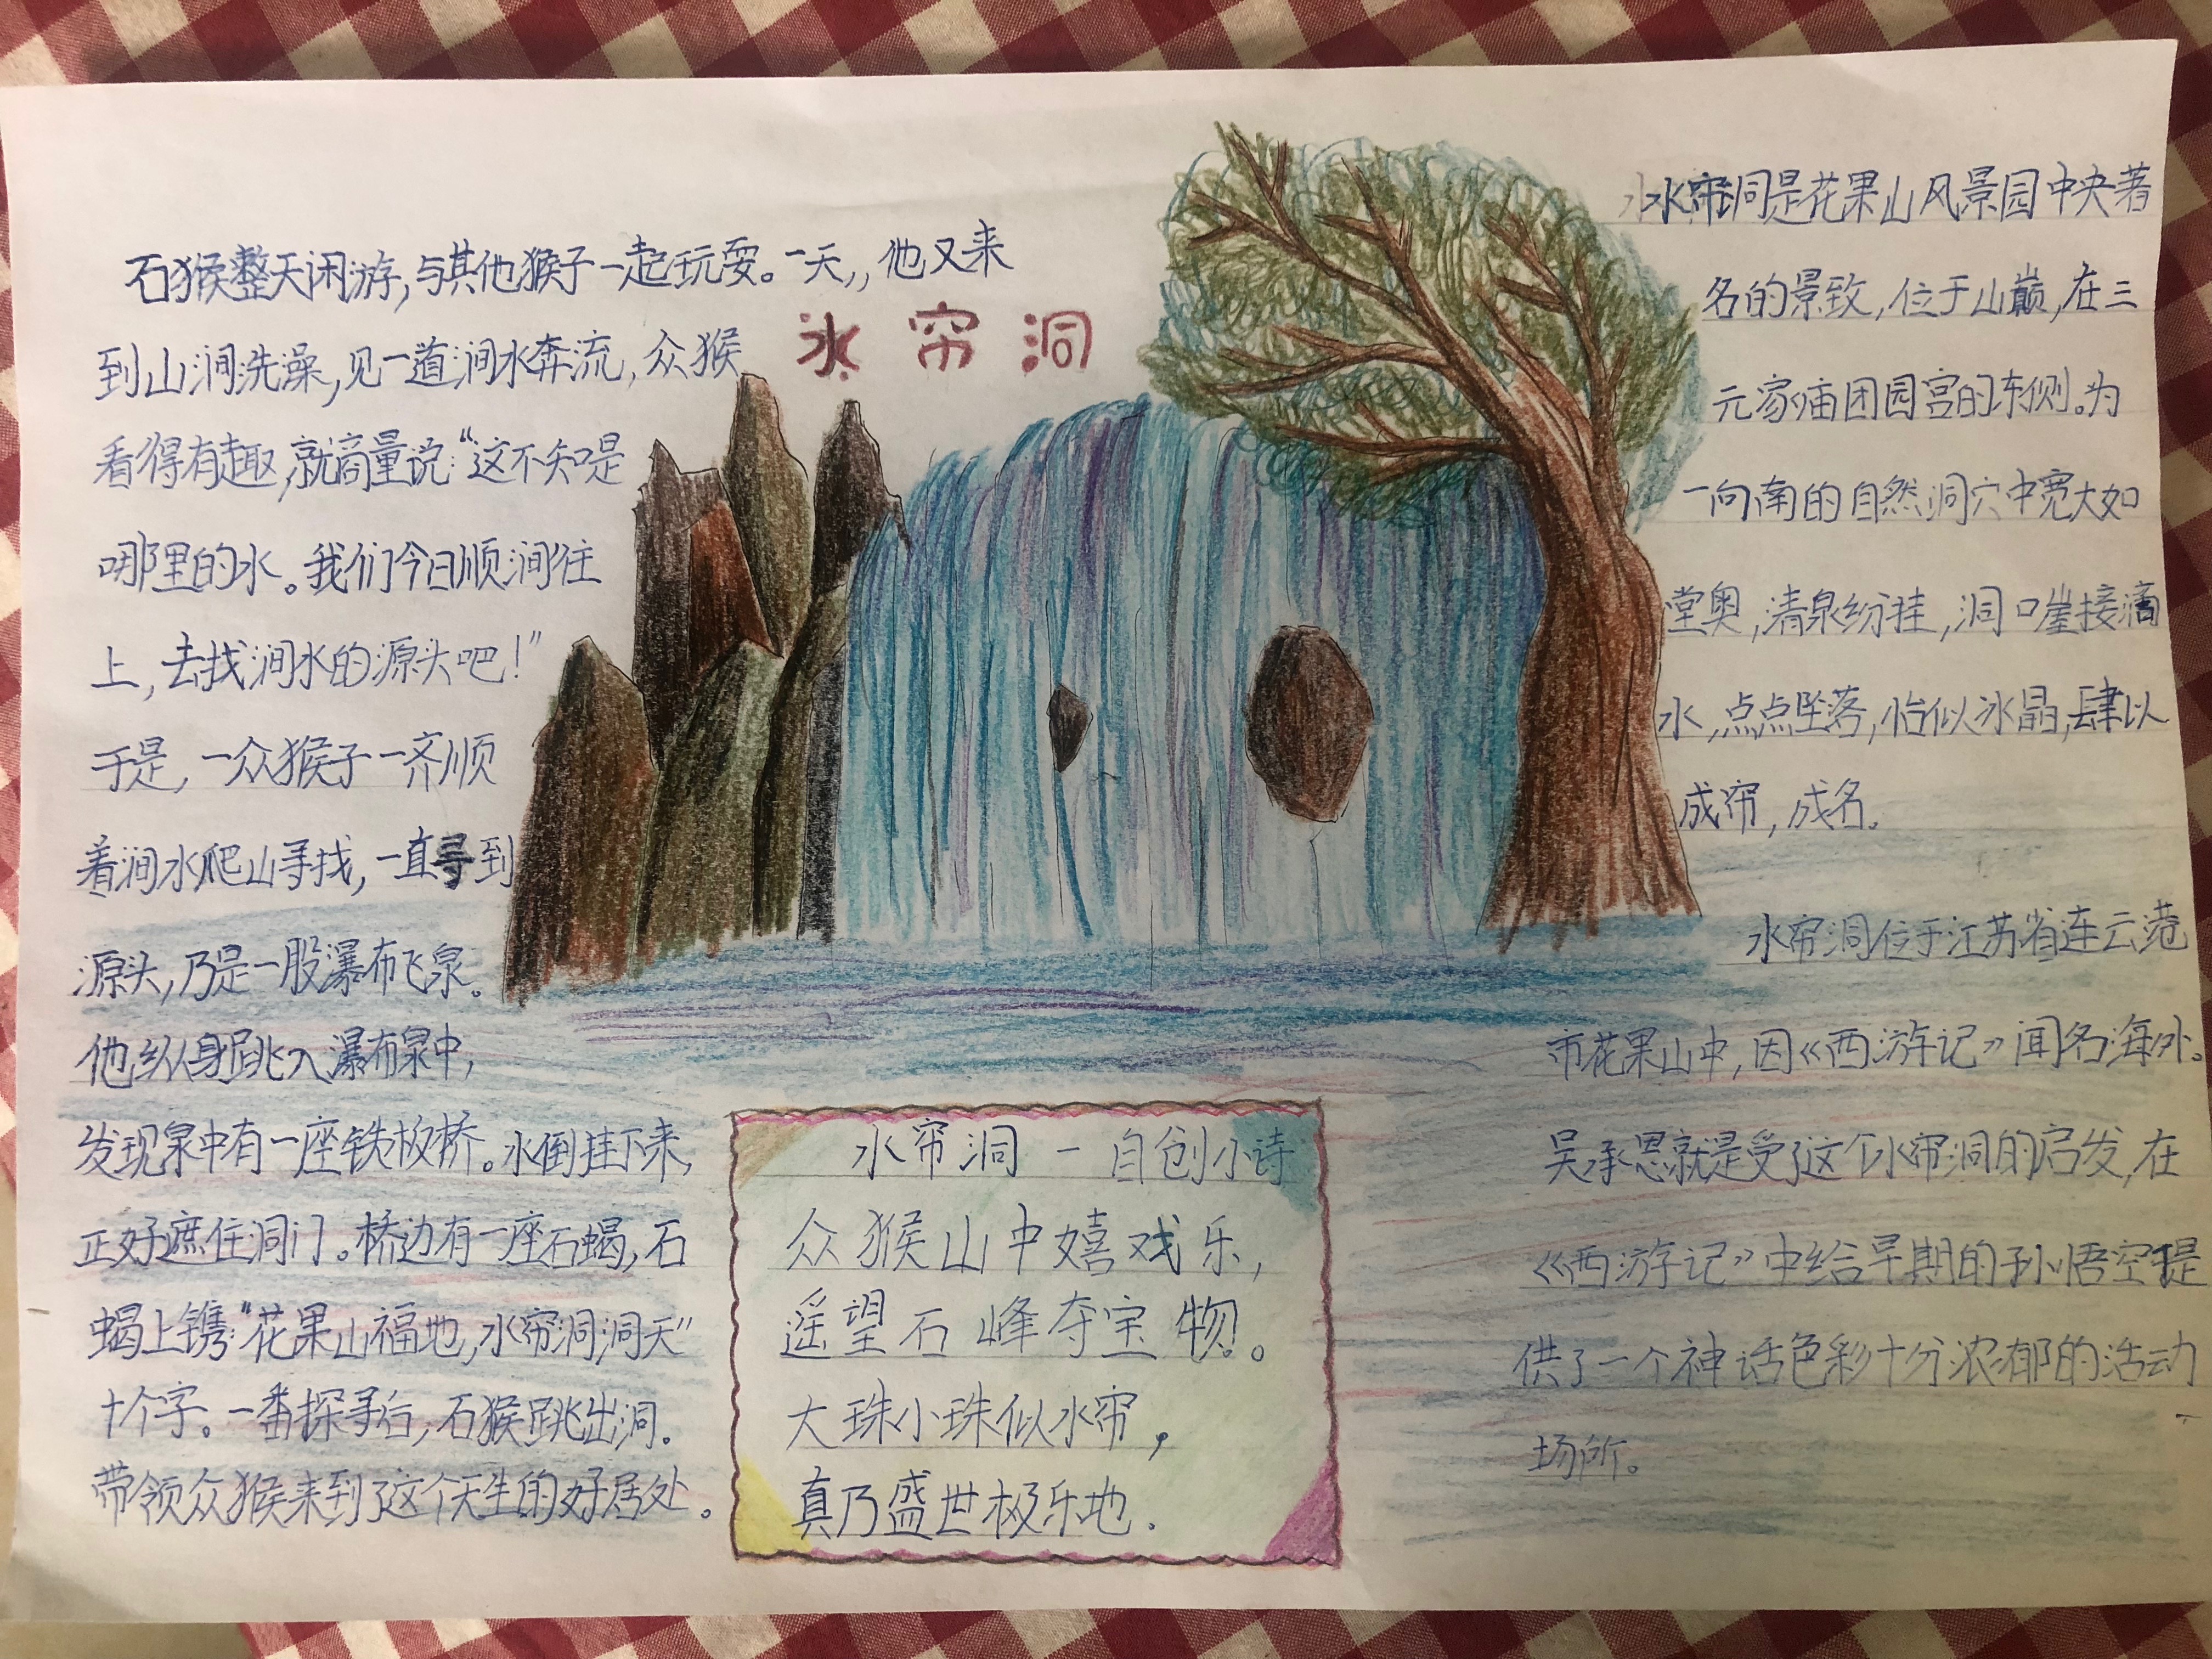 水帘洞
石猴整天闲游,与其他猴子一起玩耍。一天,,他又来
到山涧洗澡,见一道涧水奔流,众猴
看得有趣,就商量说:“这不知是
哪里的水。我们今日顺涧往
上,去找涧水的源头吧!”
于是,一众猴子一齐顺
着涧水爬山寻找,一直寻到
源头,乃是一股瀑布飞泉。
他纵身跳入瀑布泉中,
发现泉中有一座铁板桥。水倒挂下来,
正好遮住洞门。桥边有一座石蝎,石
蝎上镌:“花果山福地,水帘洞洞天”
十个字。一番探寻后,石猴跳出洞.
带领众猴来到了这个天生的好居处。
水帘洞 - 自创小诗
众猴山中嬉戏乐,
遥望石峰夺宝物。
大珠小珠似水帘,
真乃盛世极乐地.
水帘洞是花果山风景园中央著
名的景致,位于山巅,在三
元家庙团园宫的东侧。为
一向南的自然洞穴中宽大如
堂奥,清泉纷挂,洞口崖接滴
水,点点坠落,怡似冰晶,肆以
成帘,成名。
水帘洞位于江苏省连云港
市花果山中,因《西游记》闻名海外。
吴承恩就是受了这个水帘洞的启发,在
《西游记》中给早期的孙悟空提
供了一个神话色彩十分浓郁的活动
场所。